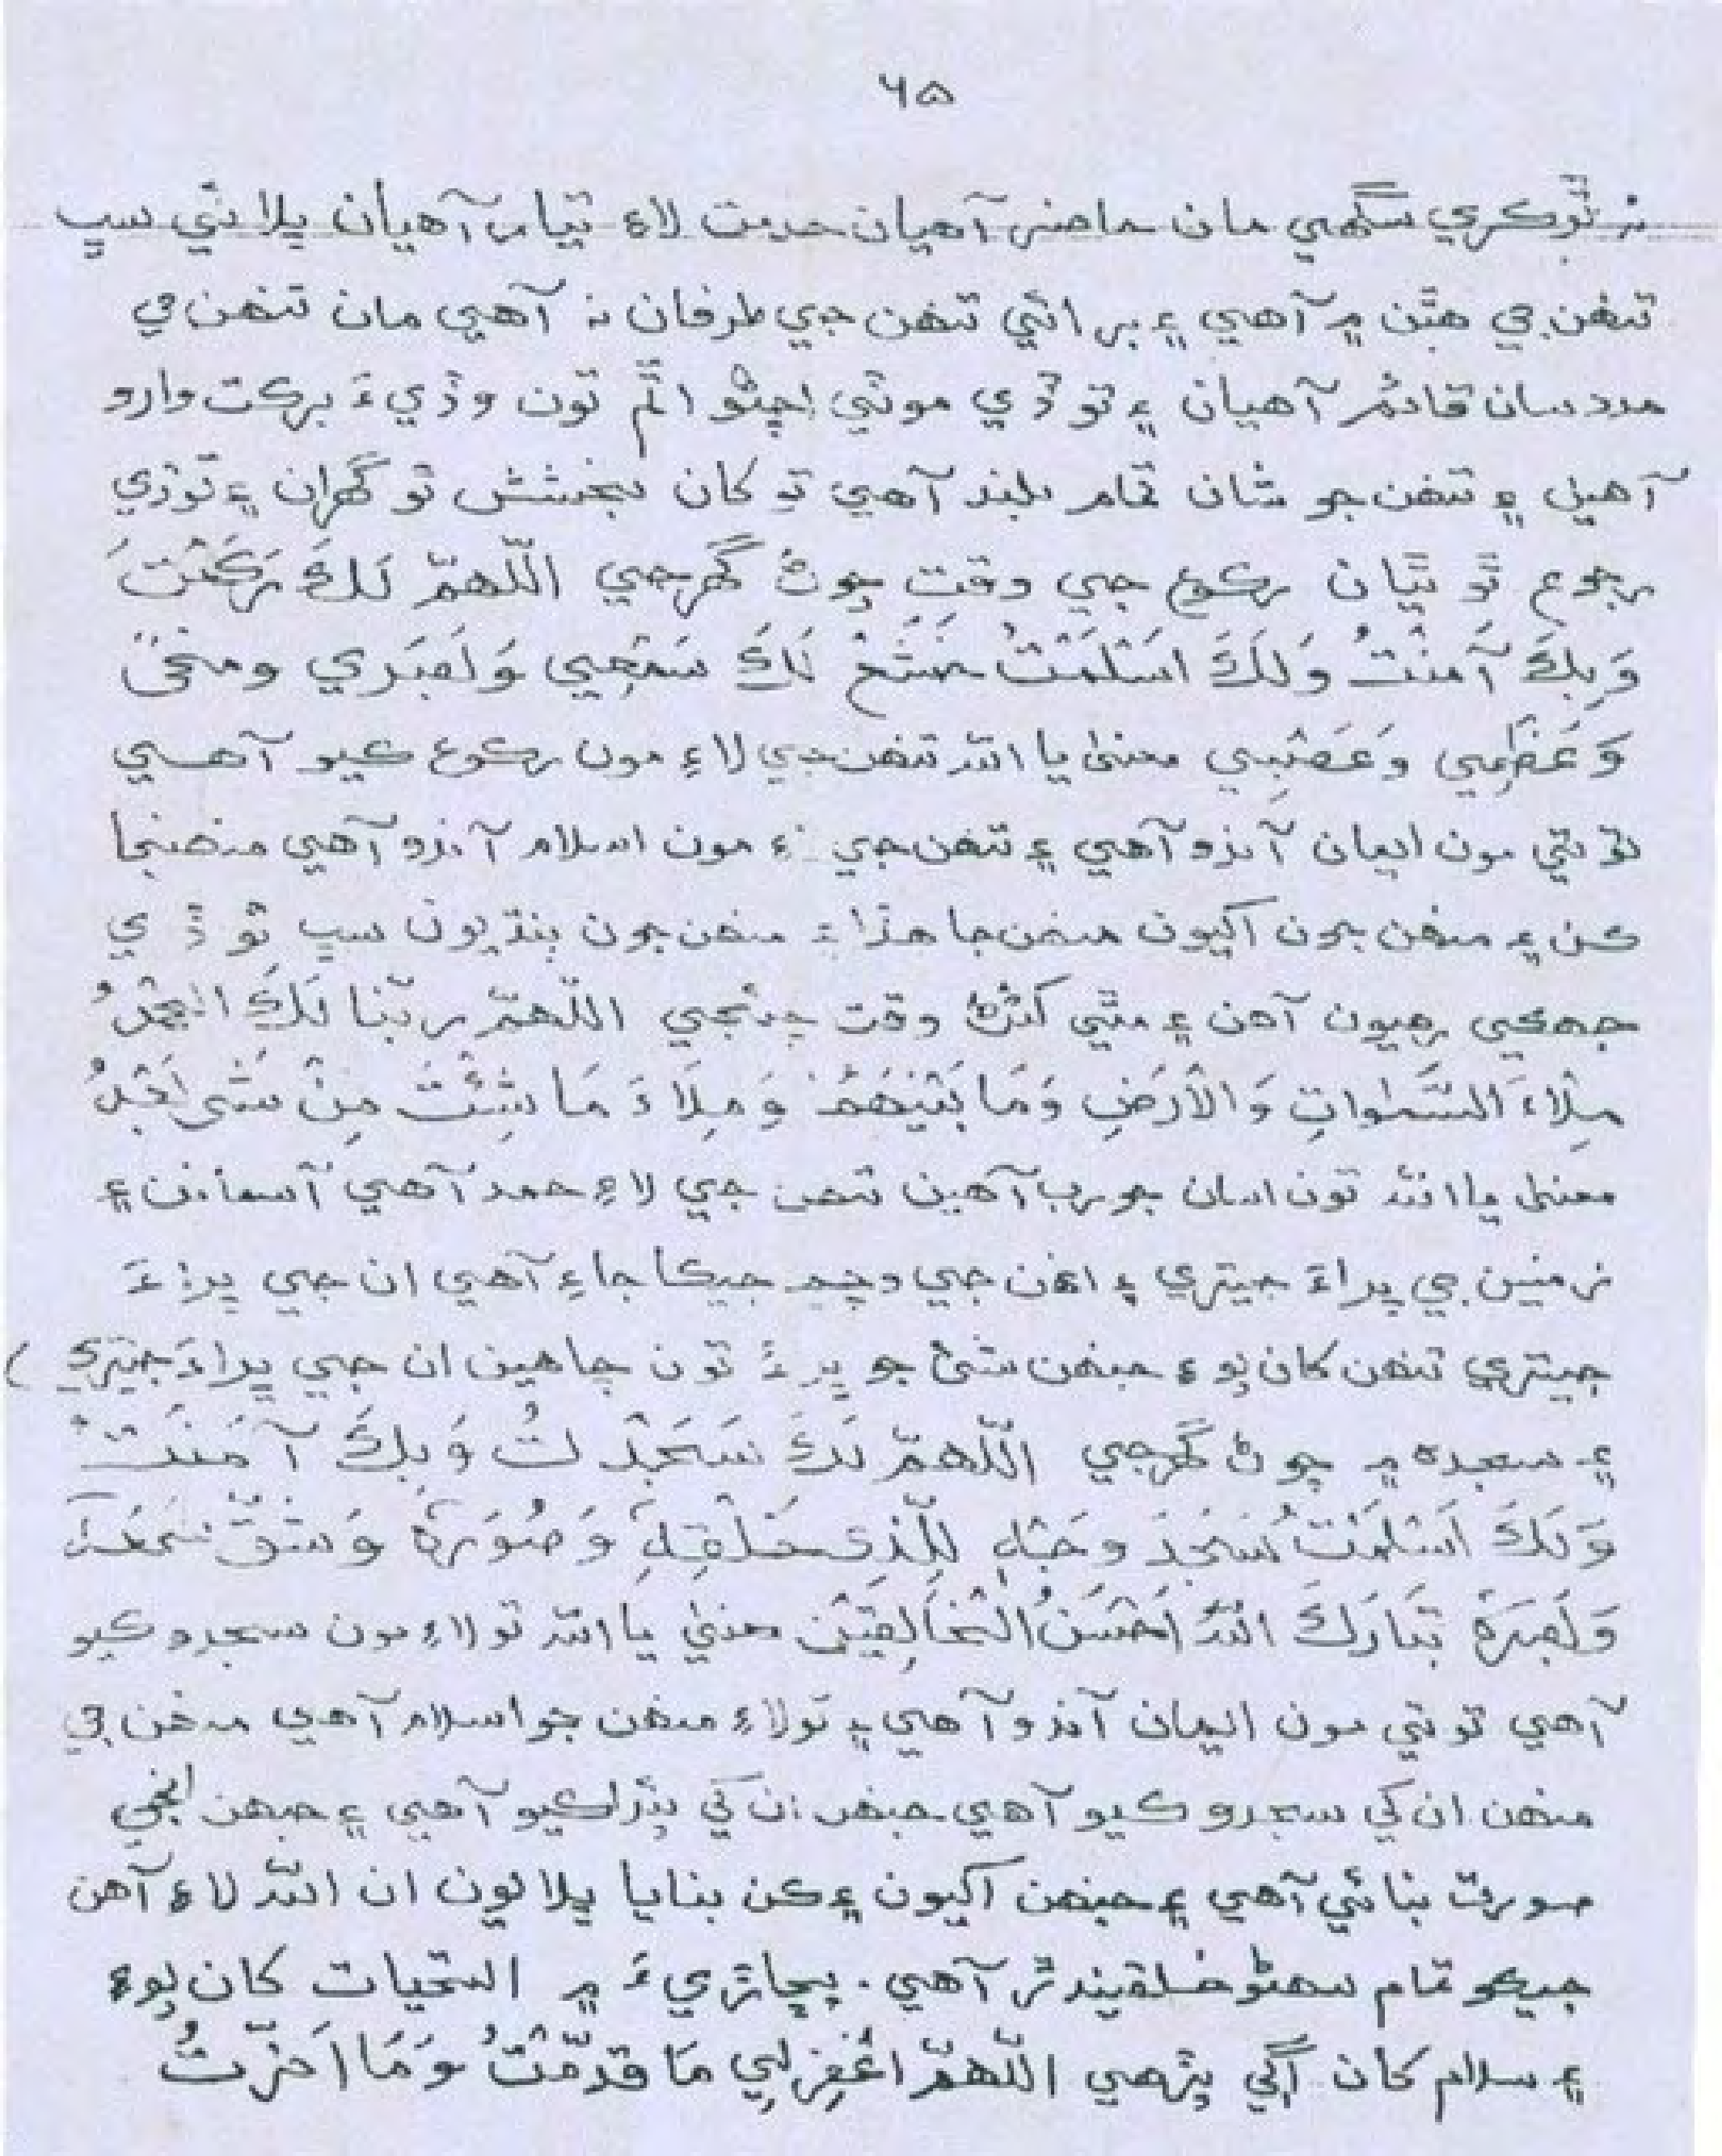 ٦٥
نه ٿو ڪري سگهي مان حاضر آهيان خدمت لاءِ تيار آهيان ڀلائي سڀ
تنهن جي هٿن ۾ آهي ۽ برائي تنهن جي طرفان نه آهي مان تنهن جي
مدد سان قائم آهيان ۽ تو ڏي موٽي اچڻو اٿم تون وڏيءَ برڪت وارو
آهين ۽ تنهن جو شان تمام بلند آهي تو کان بخشش ٿو گهران ۽ توڏي
رجوع ٿو ٿيان رڪوع جي وقت چوڻ گهرجي اللّهمّ لَكَ رَكَعْتَ
وَبِكَ آمَنْتُ وَلَكَ اَسْلَمْتُ خَشَعَ لَكَ سَمْعِي وَبَصَرِي ومخّى
وَعَظمِي وَعَصَبِي معنيٰ يا الله تنهن جي لاءِ مون رڪوع ڪيو آهي
تو تي مون ايمان آندو آهي ۽ تنهن جي لاءِ مون اسلام آندو آهي منهنجا
ڪن ۽ منهن جون اکيون منهن جا هڏا ۽ منهن جون ٻنڌيون سڀ تو ڏي
جهڪي رهيون آهن ۽ مٿي کڻڻ وقت چئجي اللّهمّ ربّنا لَكَ الحمدُ
مِلَاءَ السَّمٰوَاتِ وَالْاَرْضِ وَمَا بَيْنَهُمْ وَمِلَاءَ مَا شِئْتَ مِنْ شَى بَعْدُ
معنيٰ يا الله تون اسان جو رب آهين تنهن جي لاءِ حمد آهي آسمانن ۽
زمينن جي ڀراءَ جيتري ۽ انهن جي وچ ۾ جيڪا جاءِ آهي ان جي ڀراءَ
جيتري تنهن کان پوءِ جنهن شئ جو ڀرءُ تون چاهين ان جي ڀراءَ جيتري )
۽ سجده ۾ چوڻ گهرجي اللّهمّ لَكَ سَجَدْتُ وَبِكَ آمَنْتُ
وَلَكَ اَسْلَمْتُ سَجَدَ وَجْهِ لِلَّذِى خَلَقَهِ وَصُوَرَهٗ وَشَقَّ سَمْعَهٗ
وَبَصَرَهٗ تَبَارَكَ اللهُ اَحْسَنُ الْخَالِقِيْن معنيٰ يا الله تو لاءِ مون سجدو ڪيو
آهي تو تي مون ايمان آندو آهي ۽ تو لاءِ منهن جو اسلام آهي منهن جي
منهن ان کي سجدو ڪيو آهي جنهن ان کي پيدا ڪيو آهي ۽ جنهن انجي
صورت بنائي آهي ۽ جنهن اکيون ۽ ڪن بنايا ڀلايون ان الله لاءِ آهن
جيڪو تمام سهڻو خلقيندڙ آهي. پڇاڙيءَ ۾ التحيات کان پوءِ
۽ سلام کان اڳي پڙهي اللّهمّ اغْفِرْلِي مَا قَدَّمْتُ وَمَا اَخَّرْتُ